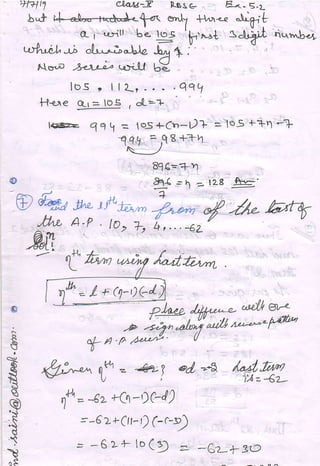 7/7/19 class-X RDSG Ex-5.2
but it also include for only three digit
a, will be 105 first 3 digit number
which is divisable by 7.
Now series will be
105, 112, . . . . . 994
Here a₁ = 105, d=7
994 = 105+(n-1)7 = 105+7n-7
994 = 98+7n
896=7n
896/7 = n = 128 Ans
⑦ Find the 11th term from of the last of
the A.P. 10, 7, 4, ....-62
Sol!
nth term using last term.
nth = l + (n-1)(-d)
place diffrence with +ve
sign along with reverse pattern
of A.P series.
Given nth = ? d = -3 last term
is = -62
nth = -62+(n-1)(-d)
=-62+(11-1)(-(-3))
= -62+10(3) = -62+30
nd.saini@outlook.com